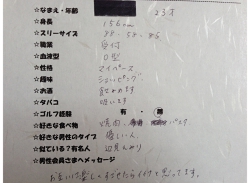 ☆なまえ・年齢 23才
☆身長 156cm
☆スリーサイズ 88-58-86
☆職業 受付
☆血液型 O型
☆性格 マイペース
☆趣味 ショッピング
☆お酒 飲めます
☆タバコ 吸います
☆ゴルフ経験 有・無
☆好きな食べ物 焼肉、パスタ
☆好きな男性のタイプ 優しい人
☆似ている?有名人 辺見えみり
☆男性会員さまへメッセージ
お互いに楽しくすごせたらイイナと思ってます。